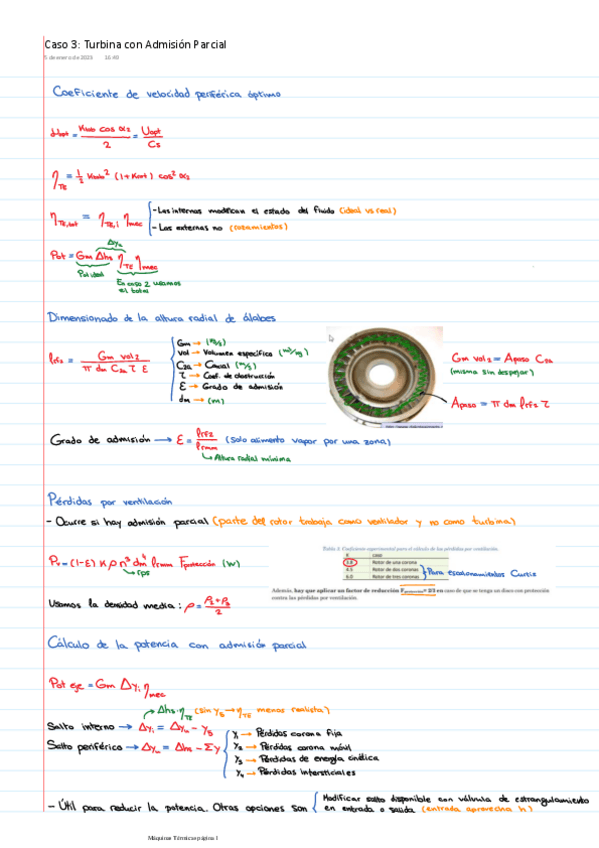 Caso 3: Turbina con Admisión Parcial
5 de enero de 2025 16:40
Coeficiente de velocidad periférica óptimo
= cos α₂ / 2 = Uopt / Cs
η_TE = 1/2 (1+Kcont) cos² α₂
η_TE,tot = η_TE,i η_mec
- Las internas modifican el estado del fluido (ideal vs real)
- Las externas no (rozamientos)
Δyu
Pot = Gm Δhs η_TE η_mec
Pot isent
En caso 2 usamos
el total
Dimensionado de la altura radial de álabes
lRF2 = Gm vol2 / π dm C2a τ ε
Gm → (m/s)
Vol → Volumen específico (m³/kg)
C2a → Caxial (m/s)
τ → Coef. de obstrucción
ε → Grado de admisión
dm → (m)
Gm vol2 = Apaso C2a
(misma sin despejar)
Apaso = π dm lRF2 τ
Grado de admisión → ε = lRF2 / lRmm (Solo alimento vapor por una zona)
↳ Altura radial mínima
Pérdidas por ventilación
- Ocurre si hay admisión parcial (parte del rotor trabaja como ventilador y no como turbina)
Tabla 4. Coeficiente experimental para el cálculo de las pérdidas por ventilación.
K caso
3.8 Rotor de una corona
4.5 Rotor de dos coronas
6.0 Rotor de tres coronas
Para escalonamientos Curtis
Pv = (1-ε) K ρ n³ dm⁴ lRmm Fprotección (W)
↳ rps
Además, hay que aplicar un factor de reducción Fprotección= 2/3 en caso de que se tenga un disco con protección
contra las pérdidas por ventilación.
Usamos la densidad media: ρ = ρ2 + ρ3 / 2
Cálculo de la potencia con admisión parcial
Pot eje = Gm Δyi η_mec
Δhs·η_TE (sin y5 → η_TE menos realista)
Salto interno → Δyi = Δyu - y5
Salto periférico → Δyu = Δhs - Σy
y1 → Pérdidas corona fija
y2 → Pérdidas corona móvil
y3 → Pérdidas de energía cinética
y4 → Pérdidas Intersticiales
- Útil para reducir la potencia. Otras opciones son
Modificar salto disponible con válvula de estrangulamiento
en entrada o salida (entrada aprovecha h)
Máquinas Térmicas página 1